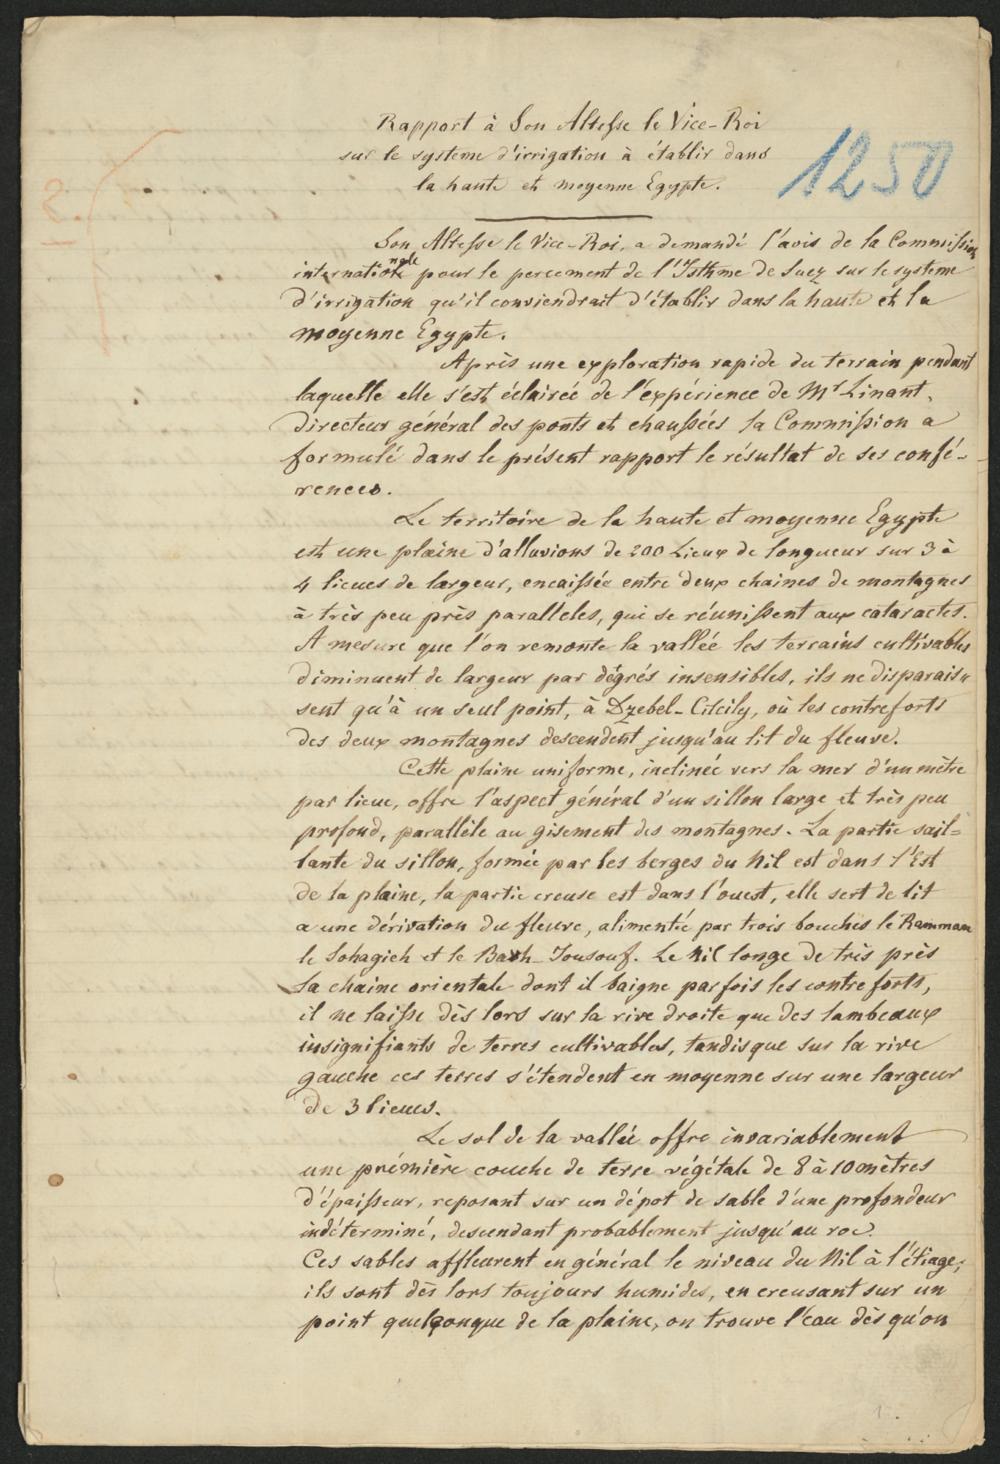 Rapport à Son Altesse le Vice-Roi
sur le systeme d'irrigation à établir dans
la haute et moyenne Egypte.
1250
Son Altesse le Vice-Roi, a demandé l'avis de la Commission
internationale pour le percement de l'Isthme de Suez sur le systeme
d'irrigation qu'il conviendrait d'établir dans la haute et la
moyenne Egypte.
Après une exploration rapide du terrain pendant
laquelle elle s'est éclairée de l'expérience de Mr Linant,
Directeur général des ponts et chaussées la Commission a
formulé dans le présent rapport le résultat de ses confé-
rences.
Le territoire de la haute et moyenne Egypte
est une plaine d'alluvions de 200 Lieux de longueur sur 3 à
4 lieues de largeur, encaissée entre deux chaines de montagnes
à très peu près paralleles, qui se réunissent aux cataractes.
A mesure que l'on remonte la vallée les terrains cultivables
diminuent de largeur par dégrés insensibles, ils ne disparais=
sent qu'à un seul point, à Dzebel-Cilcily, où les contreforts
des deux montagnes descendent jusqu'au lit du fleuve.
Cette plaine uniforme, inclinée vers la mer d'un mètre
par lieue, offre l'aspect général d'un sillon large et très peu
profond, parallèle au gisement des montagnes. La partie sail=
lante du sillon, formée par les berges du Nil est dans l'Est
de la plaine, la partie creuse est dans l'ouest, elle sert de lit
a une dérivation du fleuve, alimenté par trois bouches le Rammam
le Sohagieh et le Barh-Iousouf. Le Nil longe de très près
la chaine orientale dont il baigne parfois les contreforts,
il ne laisse dès lors sur la rive droite que des lambeaux
insignifiants de terres cultivables, tandisque sur la rive
gauche ces terres s'étendent en moyenne sur une largeur
de 3 lieues.
Le sol de la vallée offre invariablement
une prémière couche de terre végétale de 8 à 10 mètres
d'épaisseur, reposant sur un dépot de sable d'une profondeur
indéterminé, descendant probablement jusqu'au roc.
Ces sables affleurent en général le niveau du Nil à l'étiage;
ils sont dès lors toujours humides, en creusant sur un
point quelconque de la plaine, on trouve l'eau dès qu'on